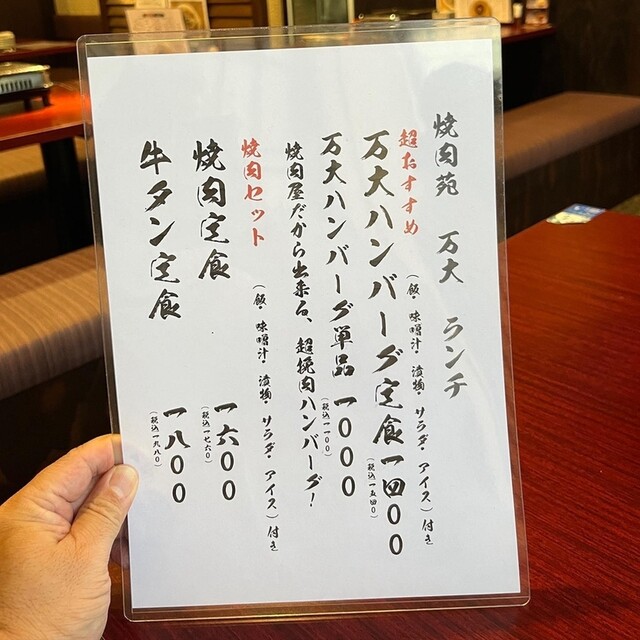 焼肉苑　万大　ランチ
超おすすめ
（飯・味噌汁・漬物・サラダ・アイス）付き
万大ハンバーグ定食一四〇〇
（税込一五四〇）
万大ハンバーグ単品　一〇〇〇
（税込一一〇〇）
焼肉屋だから出来る、超挽肉ハンバーグ！
焼肉セット
（飯・味噌汁・漬物・サラダ・アイス）付き
焼肉定食　一六〇〇
（税込一七六〇）
牛タン定食　一八〇〇
（税込一九八〇）